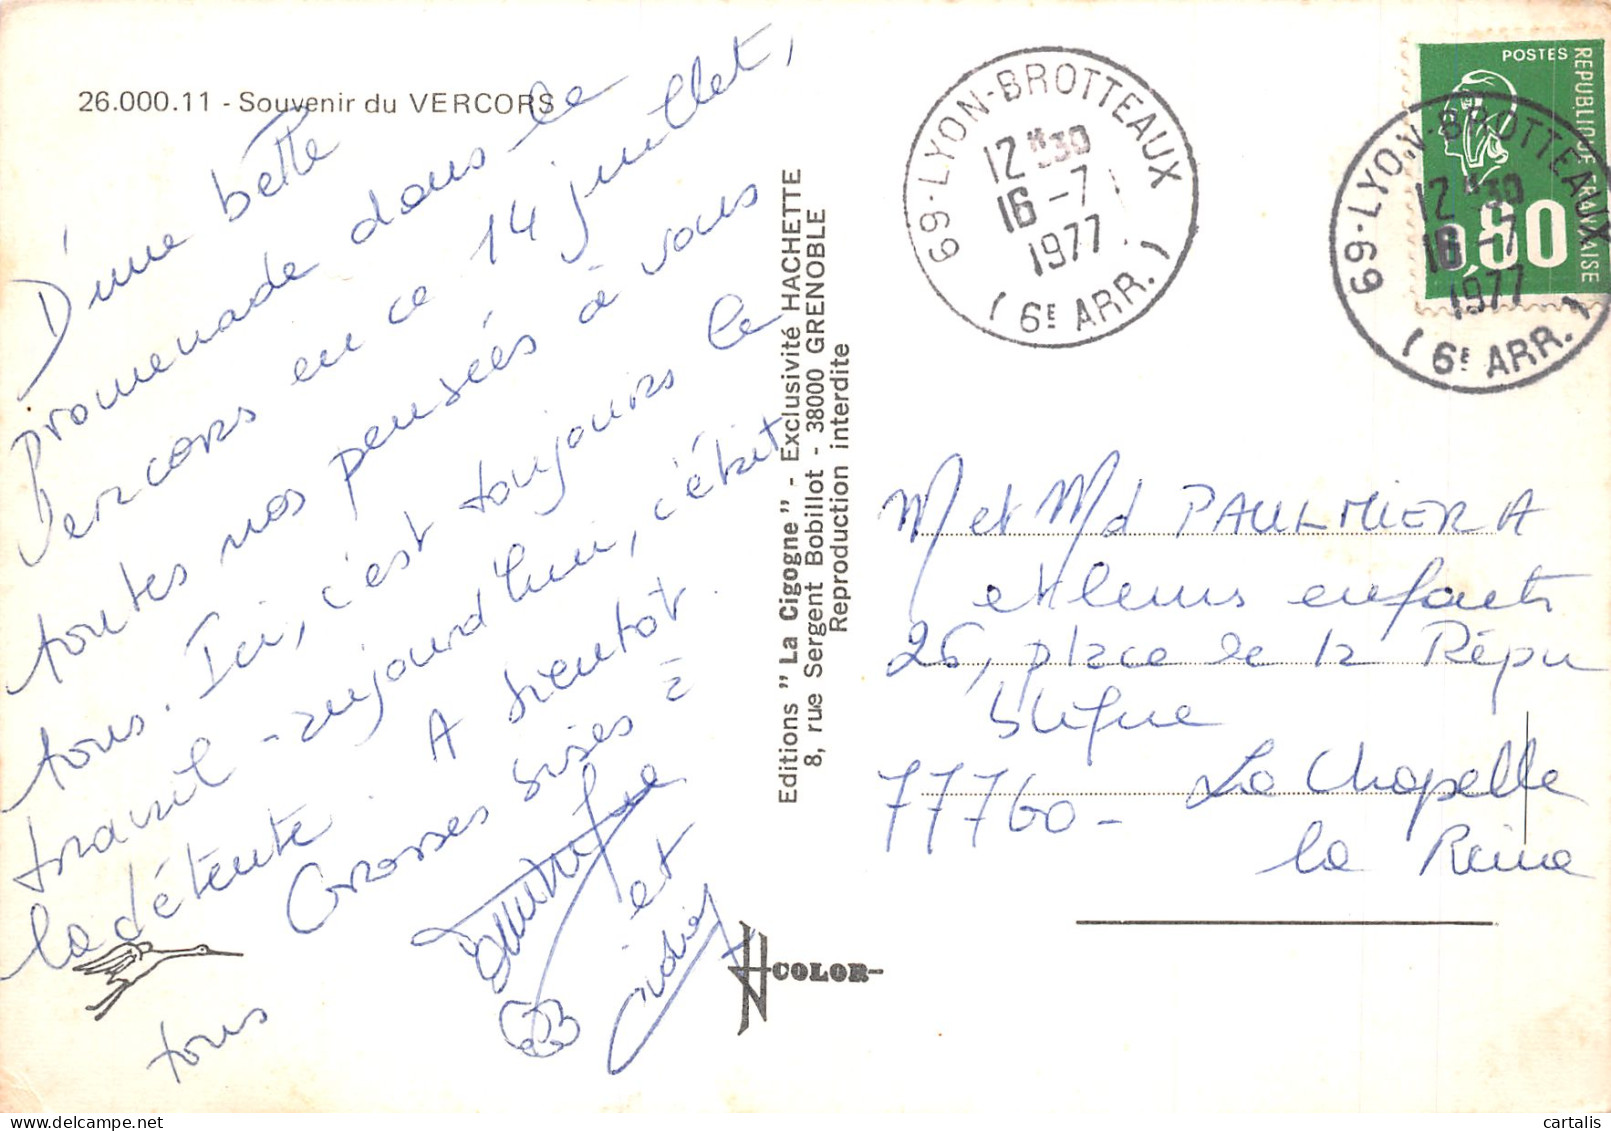 26.000.11 - Souvenir du VERCORS
D'une belle
promenade dans le
Vercors en ce 14 juillet,
toutes nos pensées à vous
tous. Ici, c'est toujours le
travail - aujourd'hui, c'était
la détente. A bientôt
Grosses bises à
tous
et
Editions " La Cigogne " - Exclusivité HACHETTE
8, rue Sergent Bobillot - 38000 GRENOBLE
Reproduction interdite
COLOR
69-LYON-BROTTEAUX
12H30
16-7
1977
(6E ARR.)
POSTES
REPUBLIQUE FRANÇAISE
0,80
69-LYON-BROTTEAUX
12H30
16-7
1977
(6E ARR.)
M et Md PAULMIER A
et leurs enfants
26, place de la Répu
blique
77760 - La Chapelle
la Reine
cartalis